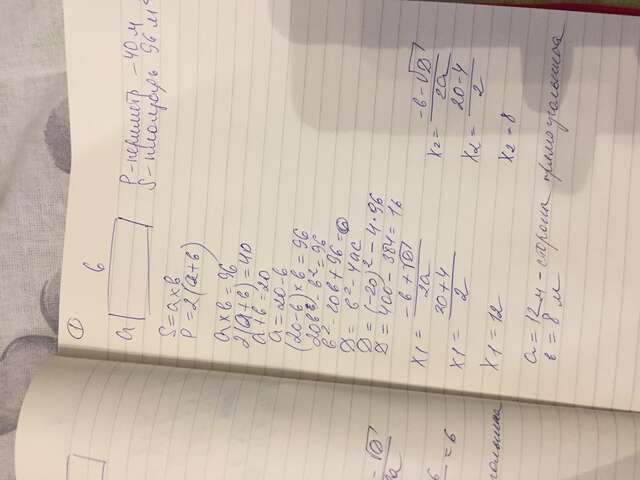 1
в
a
P - периметр - 40 м
S - площадь 96 м²
S = a x в
P = 2(a+в)
a x в = 96
2(a+в) = 40
a + в = 20
a = 20 - в
(20-в) x в = 96
20в - в² = 96
в² - 20в + 96 = 0
D = в² - 4ac
D = (-20)² - 4·96
D = 400 - 384 = 16
x1 = (-в + √D)/2a
x2 = (-в - √D)/2a
x1 = (20+4)/2
x2 = (20-4)/2
x1 = 12
x2 - 8
a = 12 м - сторона прямоугольника
в = 8 м
- √D
2a
= 6